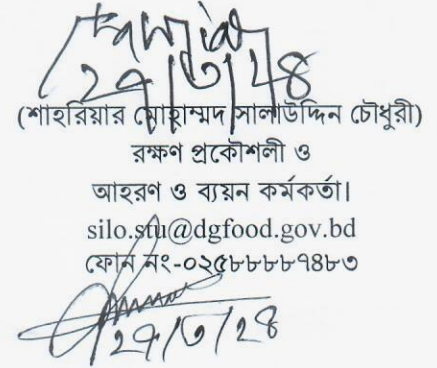 ২৭/৩/২৪
(শাহরিয়ার মোহাম্মদ সালাউদ্দিন চৌধুরী)
রক্ষণ প্রকৌশলী ও
আহরণ ও ব্যয়ন কর্মকর্তা।
silo.stu@dgfood.gov.bd
ফোন নং-০২৫৮৮৮৮৭৪৮৩
২৭/৩/২৪